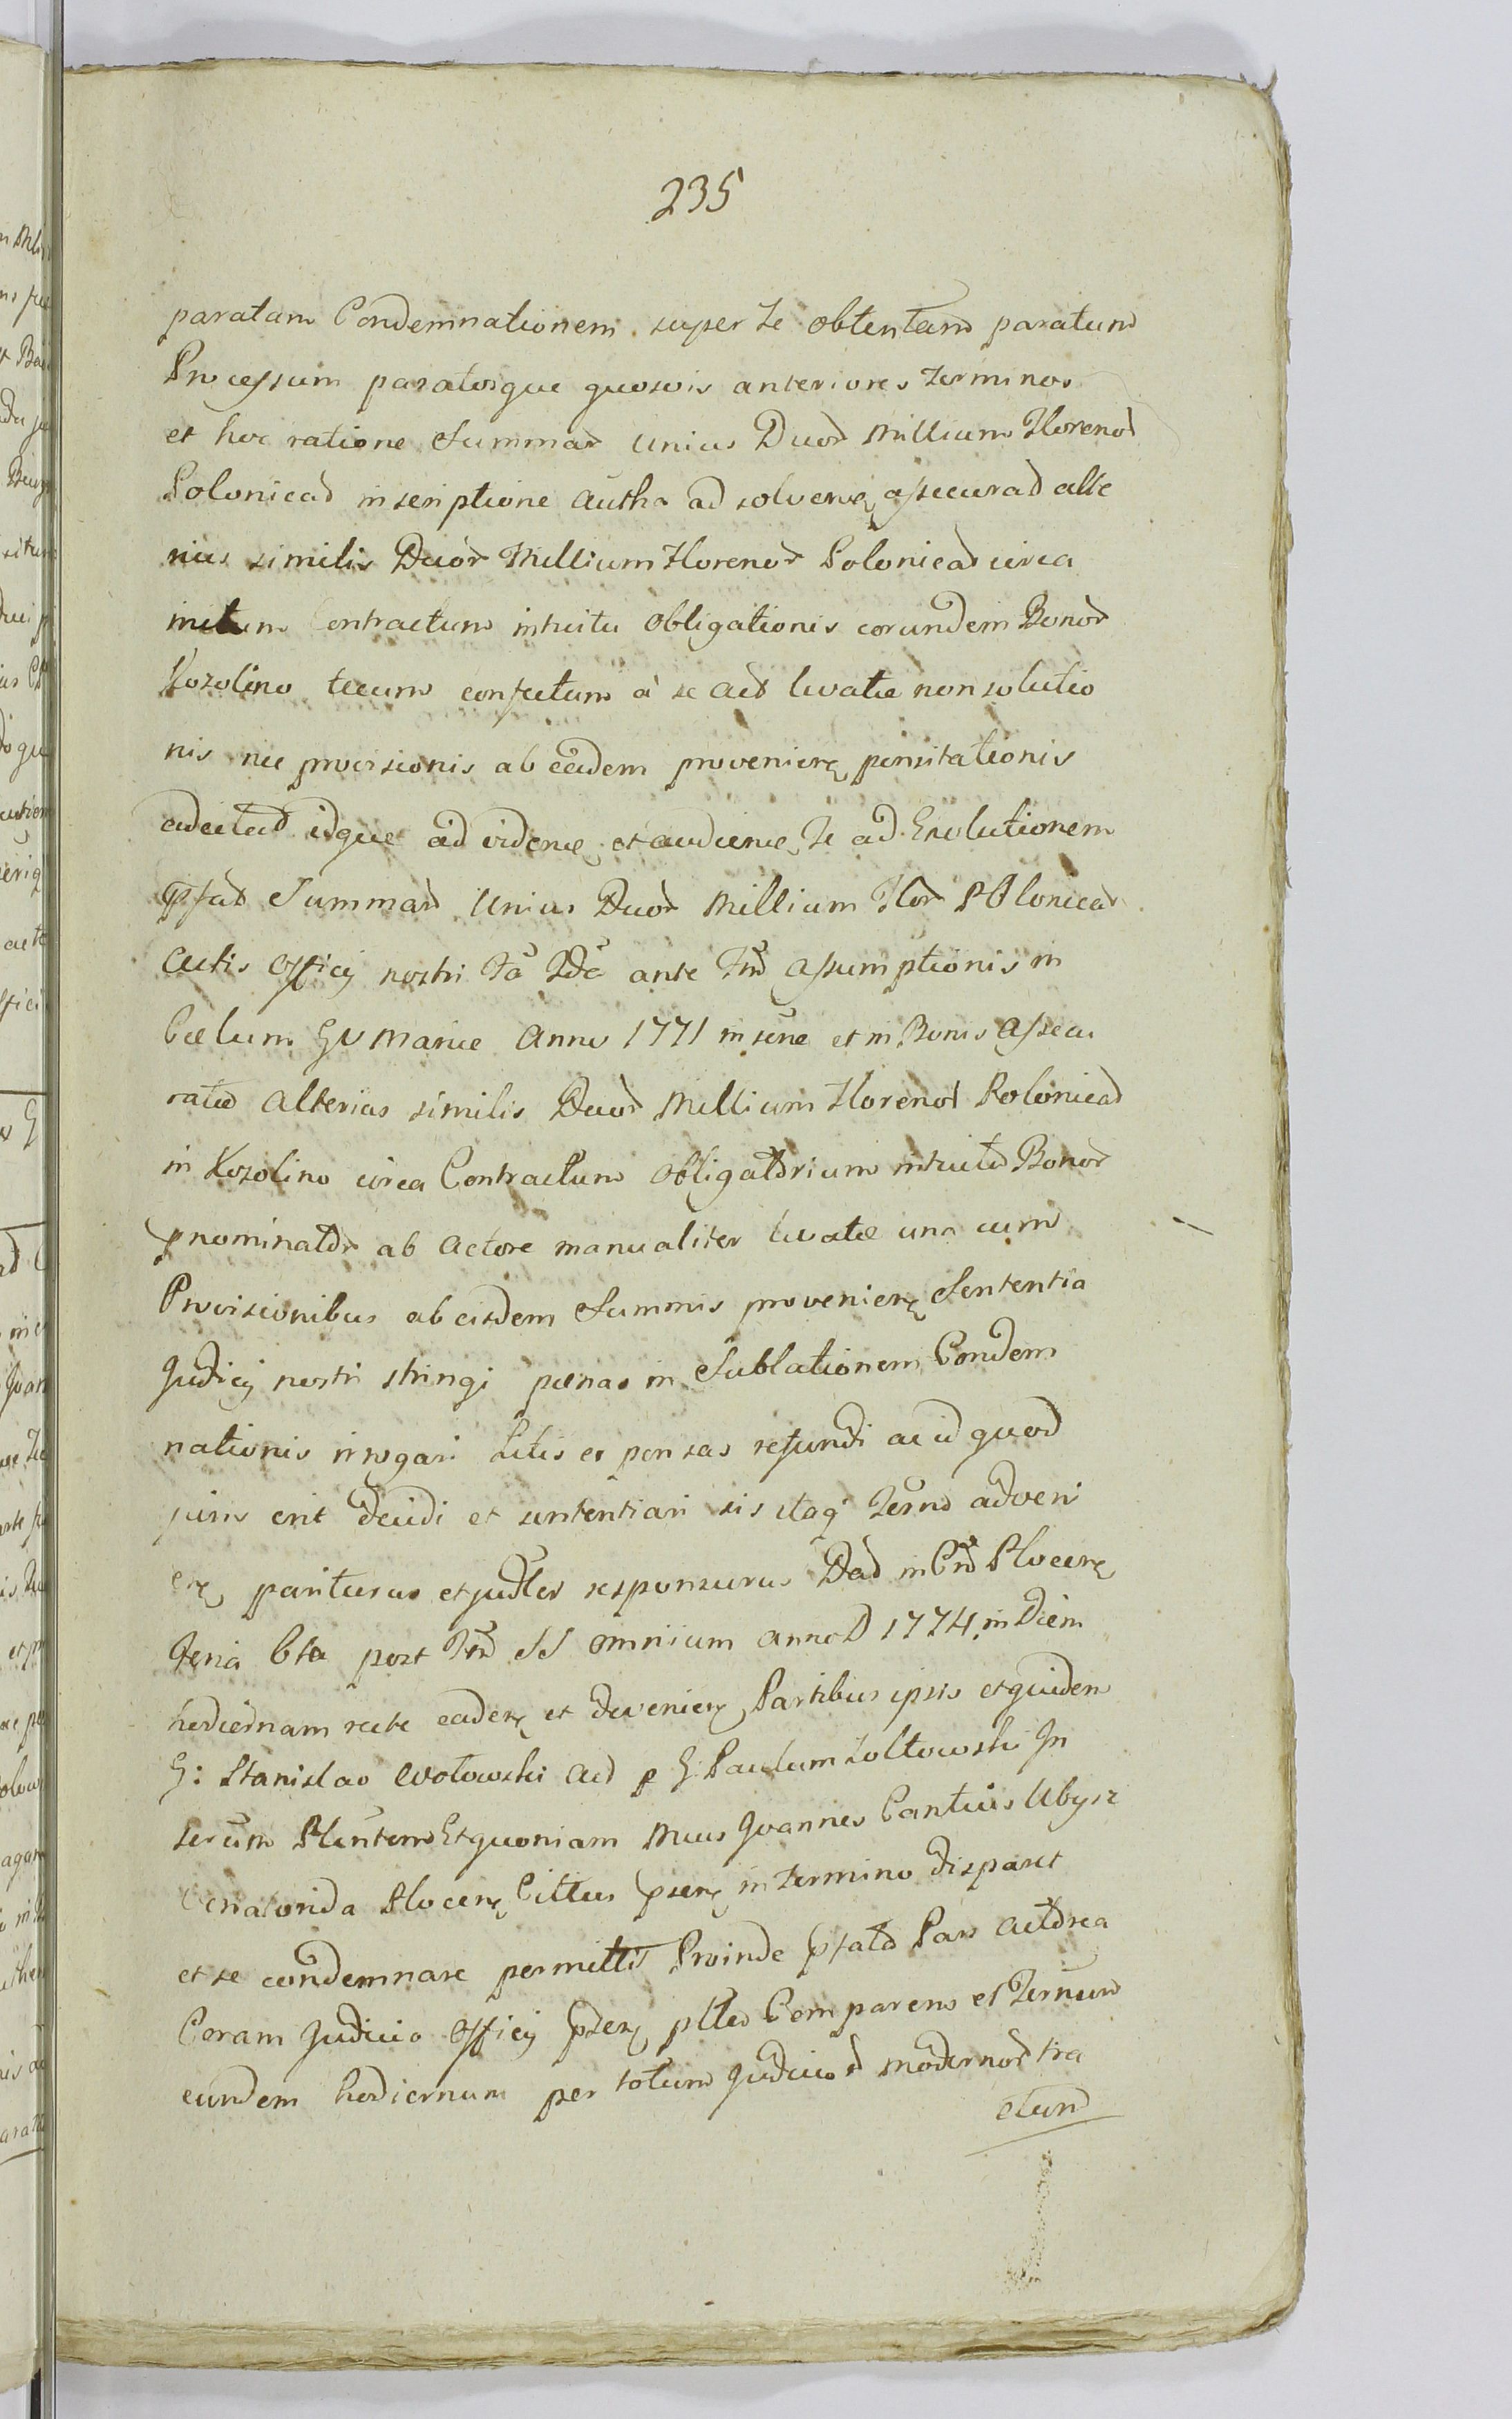 235
paratam Condemnationem super Te obtentam paratum
Processum paratosque quosvis anteriores Terminos
et hoc ratione Summar unius Duor Millium Florenor
Polonicad inscriptione autha ad solvenę assecurad alte
rius similis Duor Millium Florenor Polonicad circa
initum Contractum intuitu obligationis eorundem Bonor
Kozolino tecum confectum à se levatæ non solutio
nis nec provisionis ab eadem provenienę pensitationis
idque ad videnę et audienę Te ad Exolutionem
Summar Unius Duor Millium Flor Polonicar
Actis officij nostri ante assumptionis in
Cœlum Mariæ Anno 1771 et in Bonis assecu
ratæ alterius similis Duor Millium Florenor Polonicad
in Kozolino circa Contractum obligatorium intuitu Bonor
pnominator ab Actore manualiter levatæ una cum
Provisionibus ab eisdem Summis provenienę Sententia
Judicij nostri stringi pœnas in Sublationem Condem
nationis irrogari Litis expensas refundi ac id quod
juris erit decidi et sententiari sis itaq Termo adveni
enę pariturus et judler responsurus Dad in Plocenę
Feria 6ta post SS omnium anno D 1774 in Diem
hodiernam recte cadenę et devenienę Partibus ipsis et quidem
G: Stanislao Wołowski p G Paulum Żołtowski
Et quoniam Joannes Cantius Ubysz
Plocenę Cittus psenę in Termino disparet
et se condemnare permittit Proinde pfata Pars actorea
Coram Judicio officij psenę pltes Comparens et Ternum
eundem hodiernum per totum Judicior modernor tra
ctum